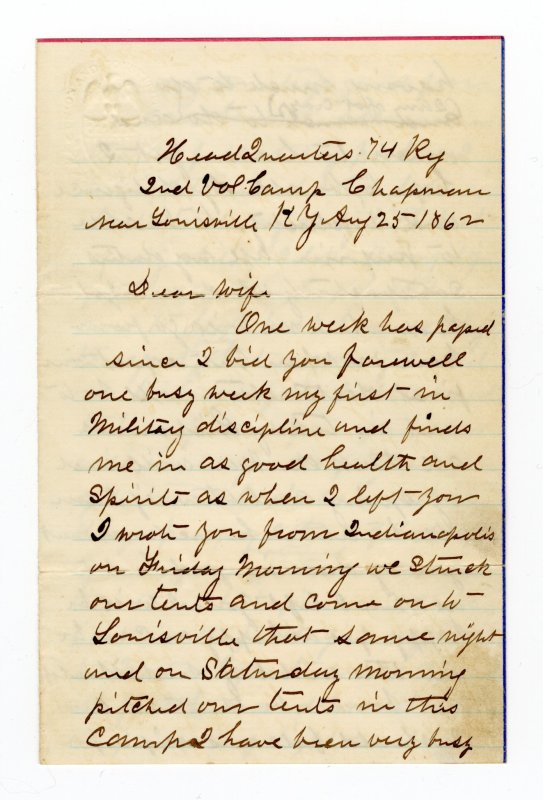 Head Quarters 74 Reg
Ind Vol Camp Chapman
near Louisville KY Aug 25 1862
Dear Wife
One week has passed
since I bid you farewell
one busy week my first in
Military discipline and finds
me in as good health and
Spirits as when I left you
I wrote you from Indianapolis
on Friday Morning we Struck
our tents and come on to
Louisville that same night
and on Saturday morning
pitched our tents in this
Camp I have been very busy